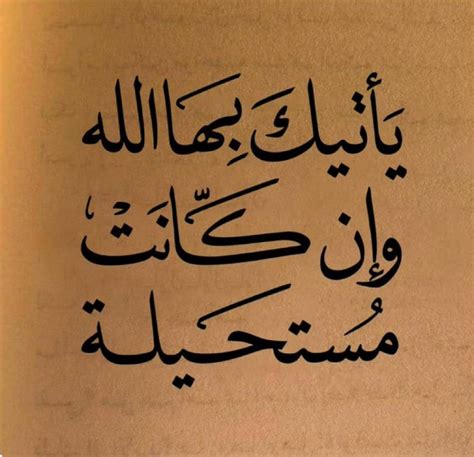 يَأتيكَ بِهَا الله
وإن كَّانَتْ
مُستحَيلة